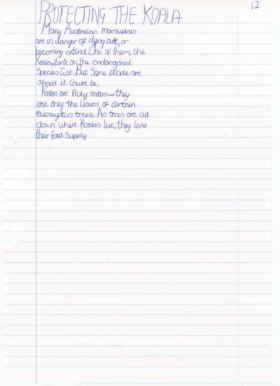 12
PROTECTING THE KOALA
Many Australian Marsupials
are in danger of dying out, or
becoming extinct. One of them, the
Koala, is on the endangered
Species list. But Some people are
afraid it could be.
Koalas are Picky eaters they
eat only the leaves of certain
Eucalyptus trees. As trees are cut
down where Koalas live, they lose
their food supply